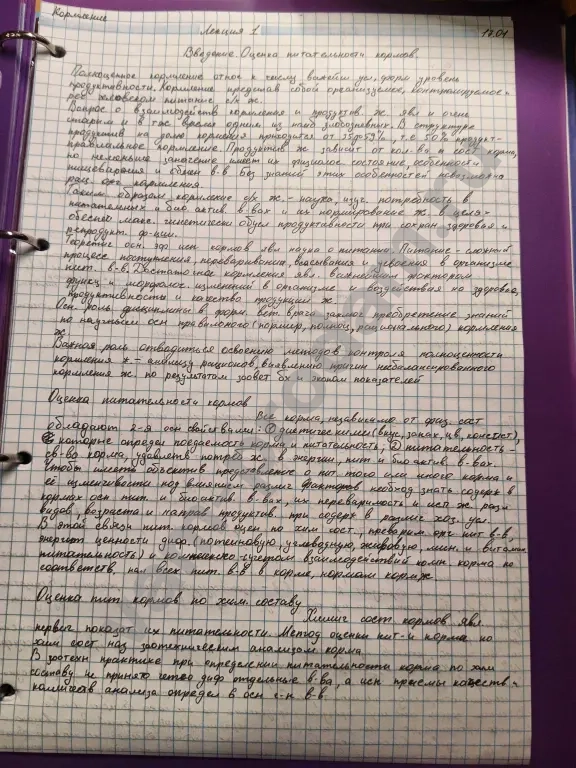 Кормление
Лекция 1
17.01
Введение. Оценка питательности кормов.
Полноценное кормление относ к числу важнейш усл, форм уровень
продуктивности. Кормление представ собой организуемое, контролируемое
человеком питание с/х ж.
Вопрос о взаимодейств кормления и продуктив ж явл и очень
старым и в т же время одним из наиб злободневных. В структуре
продуктив на долю кормления приходится от 55 до 59%, т.е. 50% продукт-
правильное кормление. Продуктив ж зависит от кол-ва и сост корма,
но не меньшее значение имеет их физиолог состояние, особенности
пищеварения и обмен в-в Без знаний этих особенностей невозможна
рац. орг кормления.
Таким образом, кормление с/х ж. - наука, изуч. потребность в
питательных и биол. актив. в-вах и их нормирование ж. в целях
обеспеч макс. генетически обусл продуктивности при сохран здоровья и
репродукт. ф-ции.
Теоретич осн. для исп кормов явл наука о питании. Питание - сложный
процесс поступления, переваривания, всасывания и усвоения в организме
пит. в-в. Достаточное кормления явл. важнейшим фактором
функц и морфолог. изменений в организме и воздействия на здоровье,
продуктивность и качество продукции ж
Осн роль дисциплины в форм вет. врача заключ приобретение знаний
по научным осн правильного (нормир, полноц, рационального) кормления
ж.
Важная роль отводиться освоению методов контроля полноценности
кормления ж - анализу рационов, выявлению причин несбалансированного
кормления ж. по результатам зоовет бх и эконом показателей
Оценка питательности кормов
Все корма, независимо от физ. сост
обладают 2-я осн свойствами: ① диетическими (вкус, запах, цв, консист),
которые определ поедаемость корма и питательность; ② питательность -
св-во корма, удовлет потреб ж в энергии, пит и биол актив. в-вах.
Чтобы иметь объектив представление о пит того или иного корма и
её изменчивости под влиянием различ факторов необход знать содерж в
кормах осн пит. и биол актив. в-вах, их переваримость и исп ж. разн
видов, возраста и направ продуктив. при содерж в различ хоз. усл.
В этой связи пит. кормов оцен по хим сост., преварим. орг пит в-в,
энергет ценности, диф. (протеиновую, углеводную, жировую, мин. и витамин
питательность) и комплексно с учетом взаимодействий комп. корма по
соответств. нал всех пит. в-в в корме, нормам корм ж.
Оценка пит. кормов по хим. составу
Химич сост кормов явл
первич показат их питательности. Метод оценки пит-и корма по
хим сост наз зоотехническим анализом корма.
В зоотехн практике при определении питательности корма по хим
составу не принято четко диф отдельные в-ва, а исп приемы качеств и
количеств анализа определ 6 осн с-п в-в.